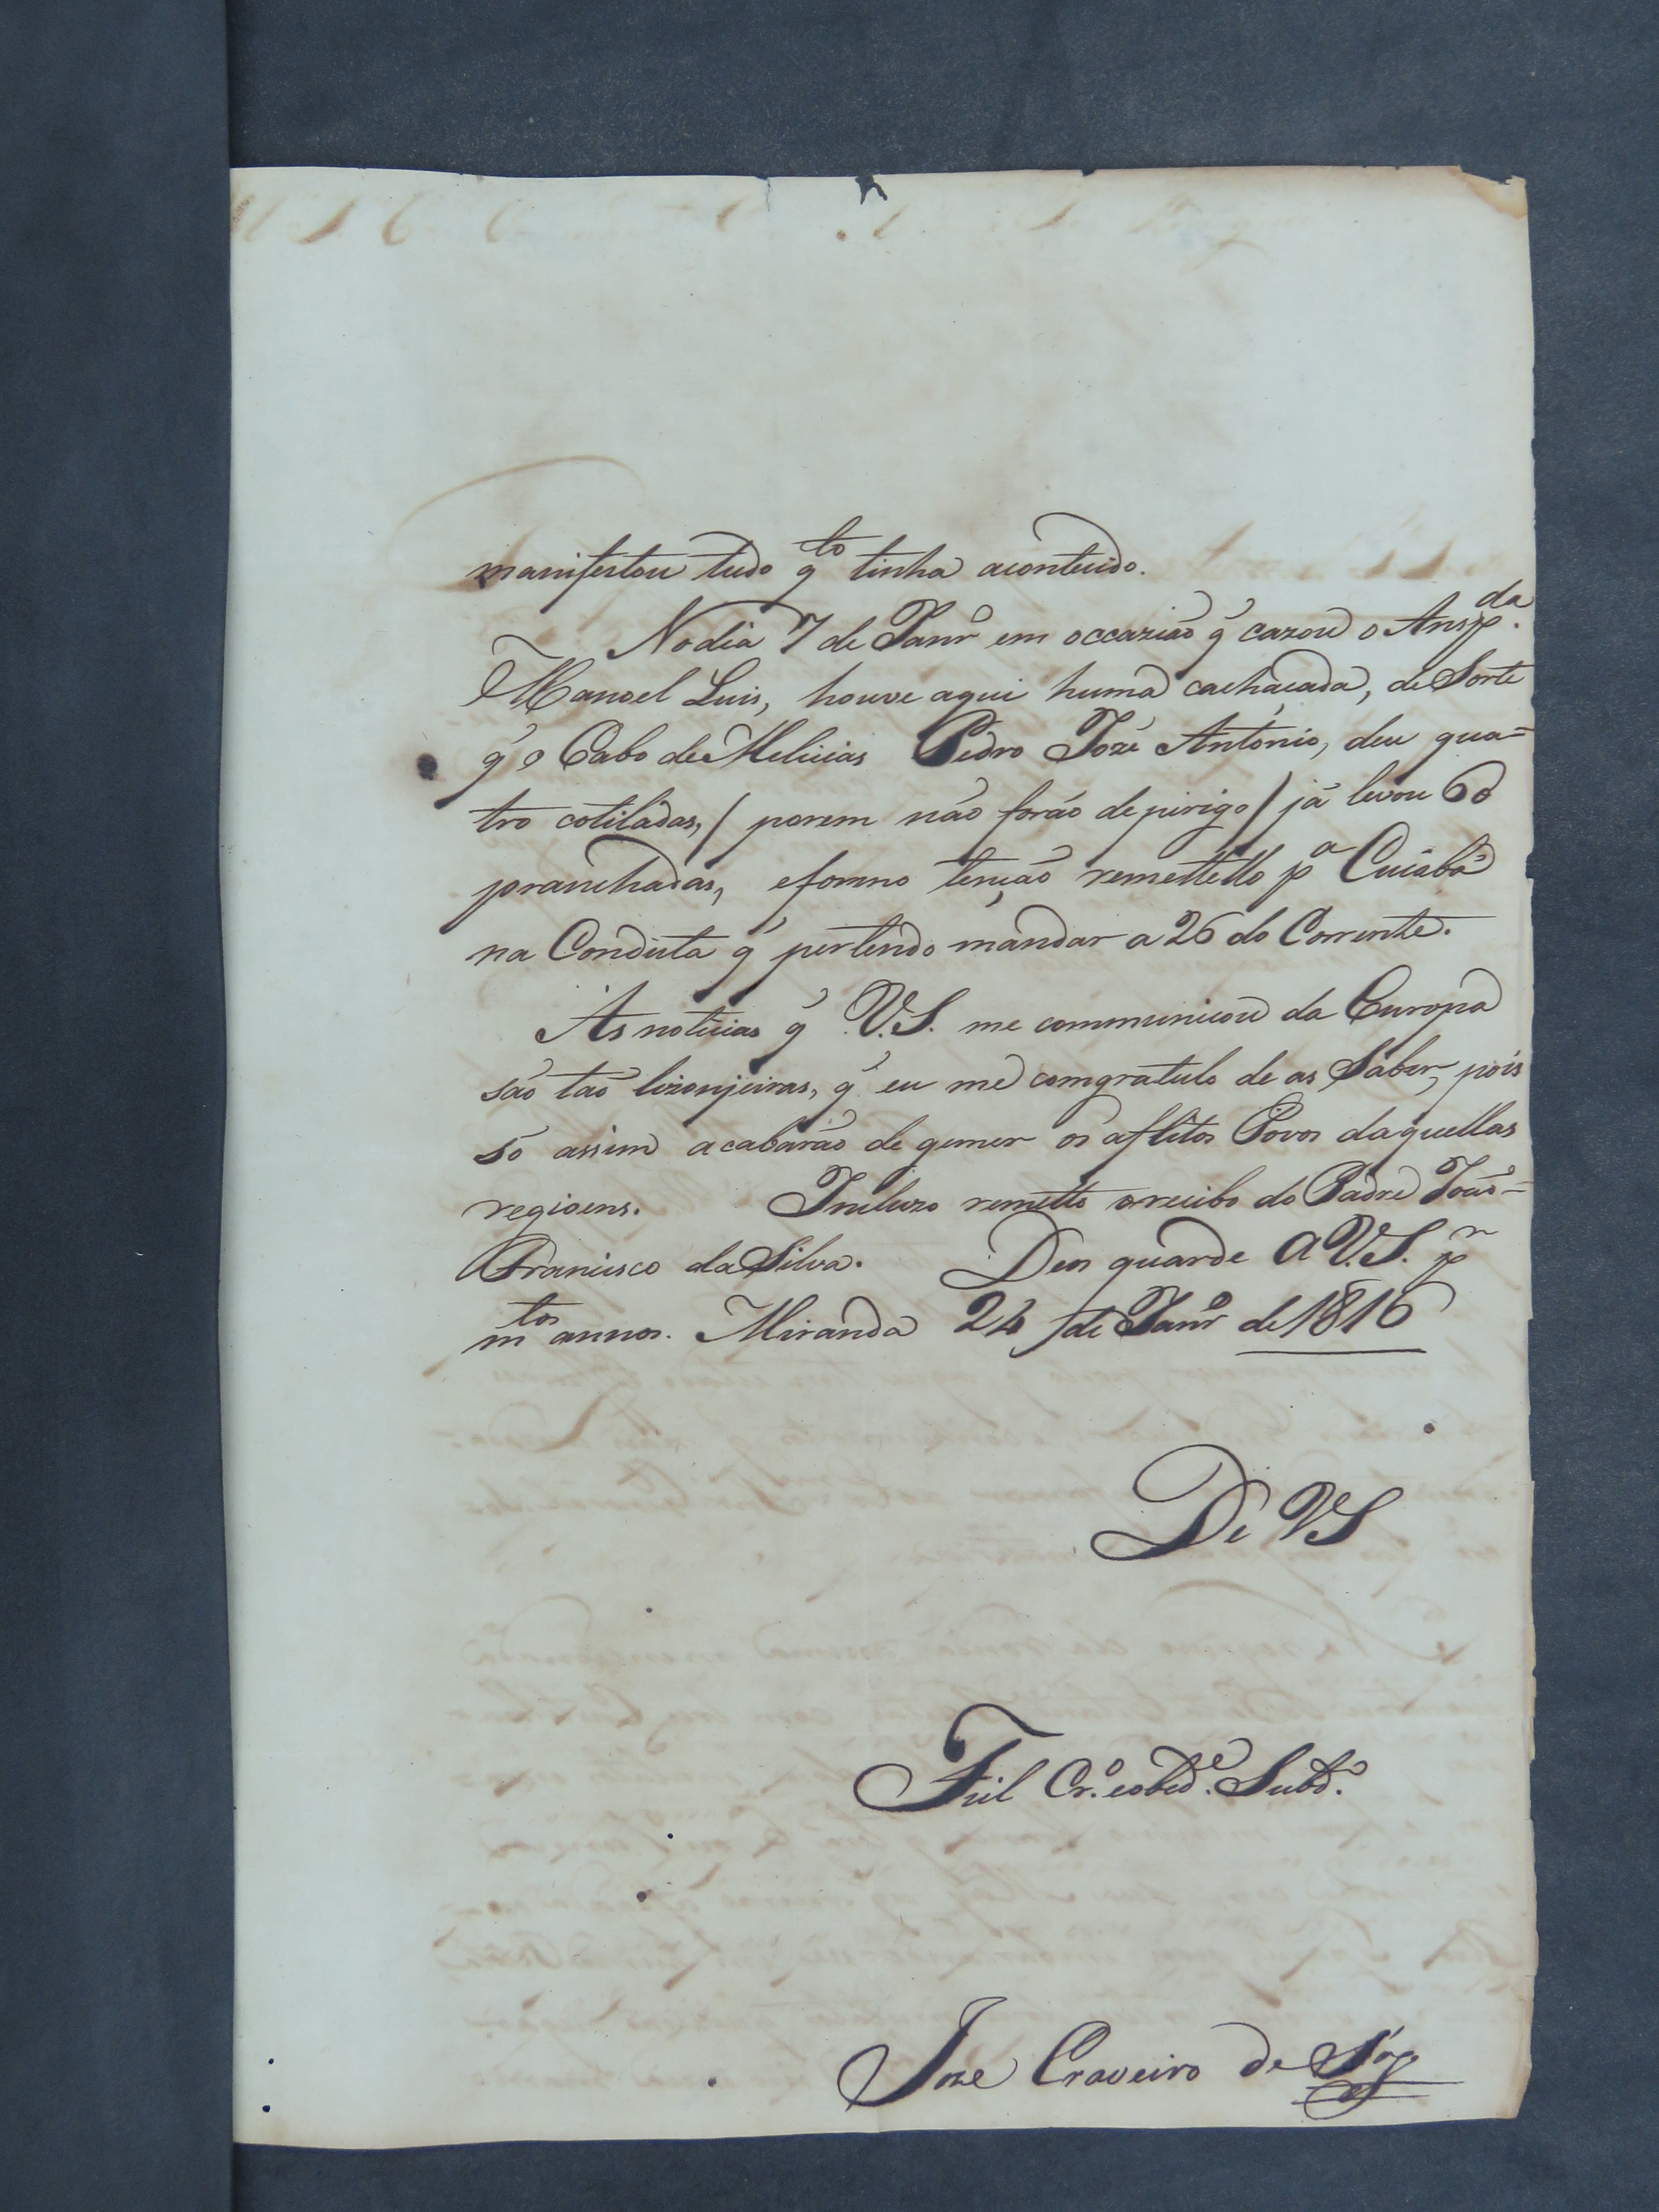 manifestou tudo q.to tinha acontecido.
No dia 7 de Janr.o em occazião q̃ cazou o Ansp.da
Manoel Luis, houve aqui huma cachaçada, de Sorte
q̃ o Cabo de Melicias Pedro Jozé Antonio, deu qua=
tro cotiladas, / porem não forão de pirigo / já levou 60
pranchadas, e formo tenção remettello p.a Cuiabá
na Conduta q̃ pertendo mandar a 26 do Corrente.
As noticias q̃ V.S. me communicou da Europa
são tão lizonjeiras, q̃ eu me comgratulo de as Saber, pois
só assim acabarão de gemer os aflitos Povos daquellas
regioens. Incluzo remetto o recibo do Padre João=
Francisco da Silva. Deos guarde a V.S. p.r
m.tos annos. Miranda 24 de Janr.o de 1816
De VS
Fiel Cr.o e obed.e Subd.o
Jose Craveiro de Sá